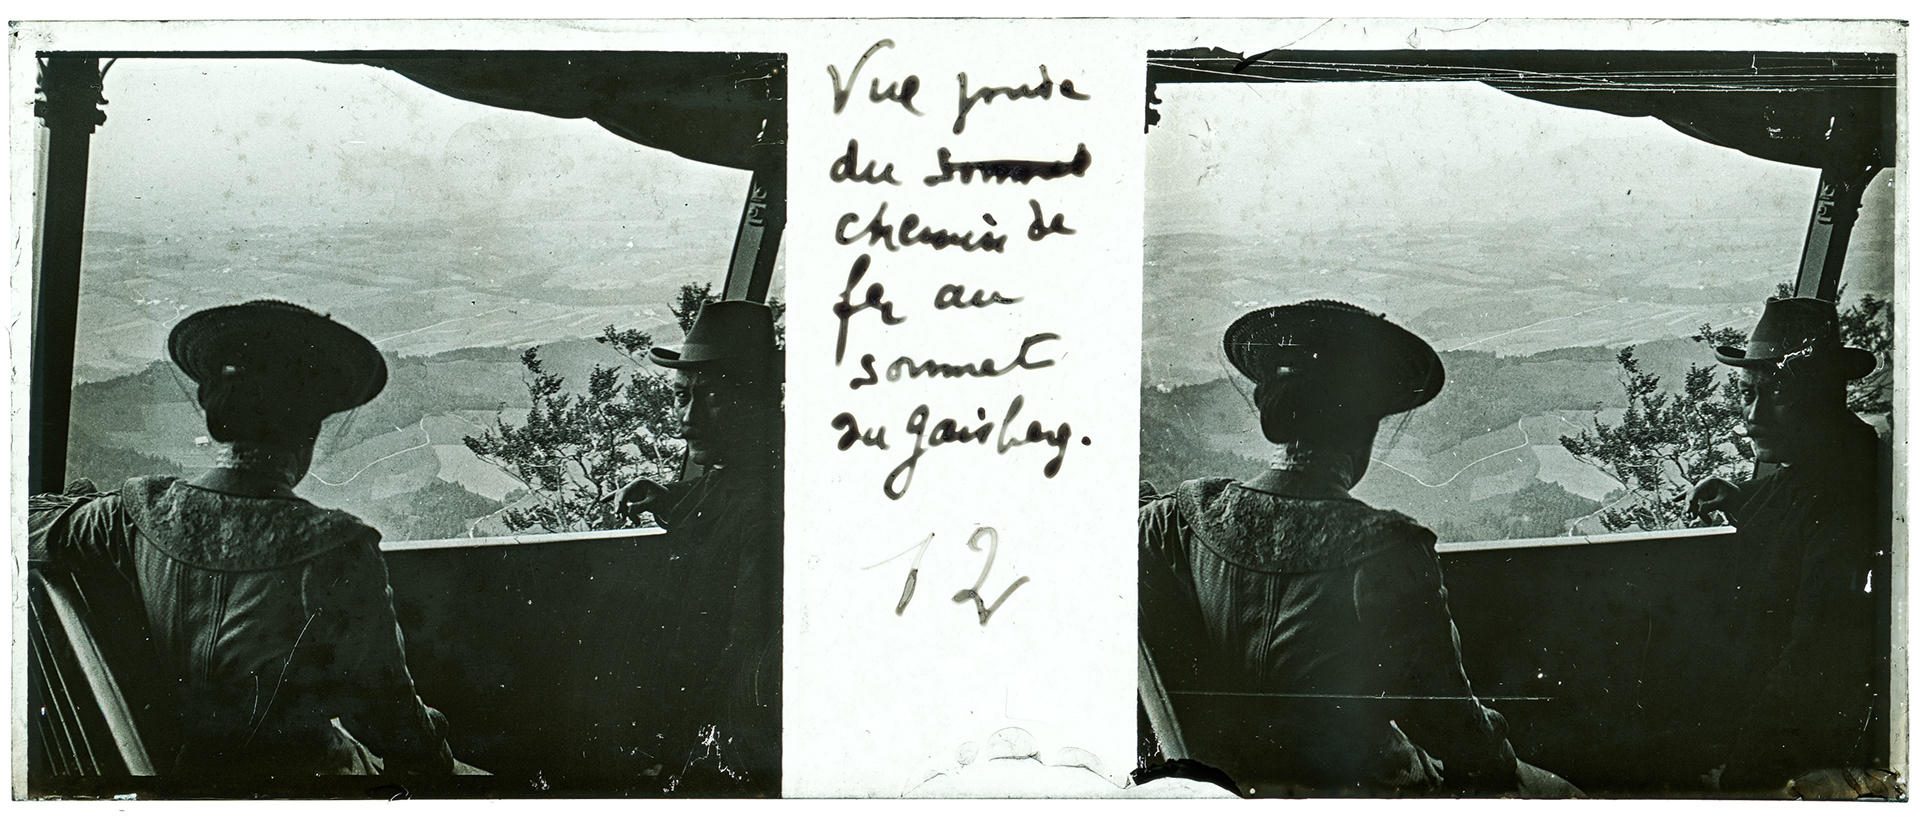 Vue prise
du sommet
chemin de
fer au
sommet
du Gaisberg.
12